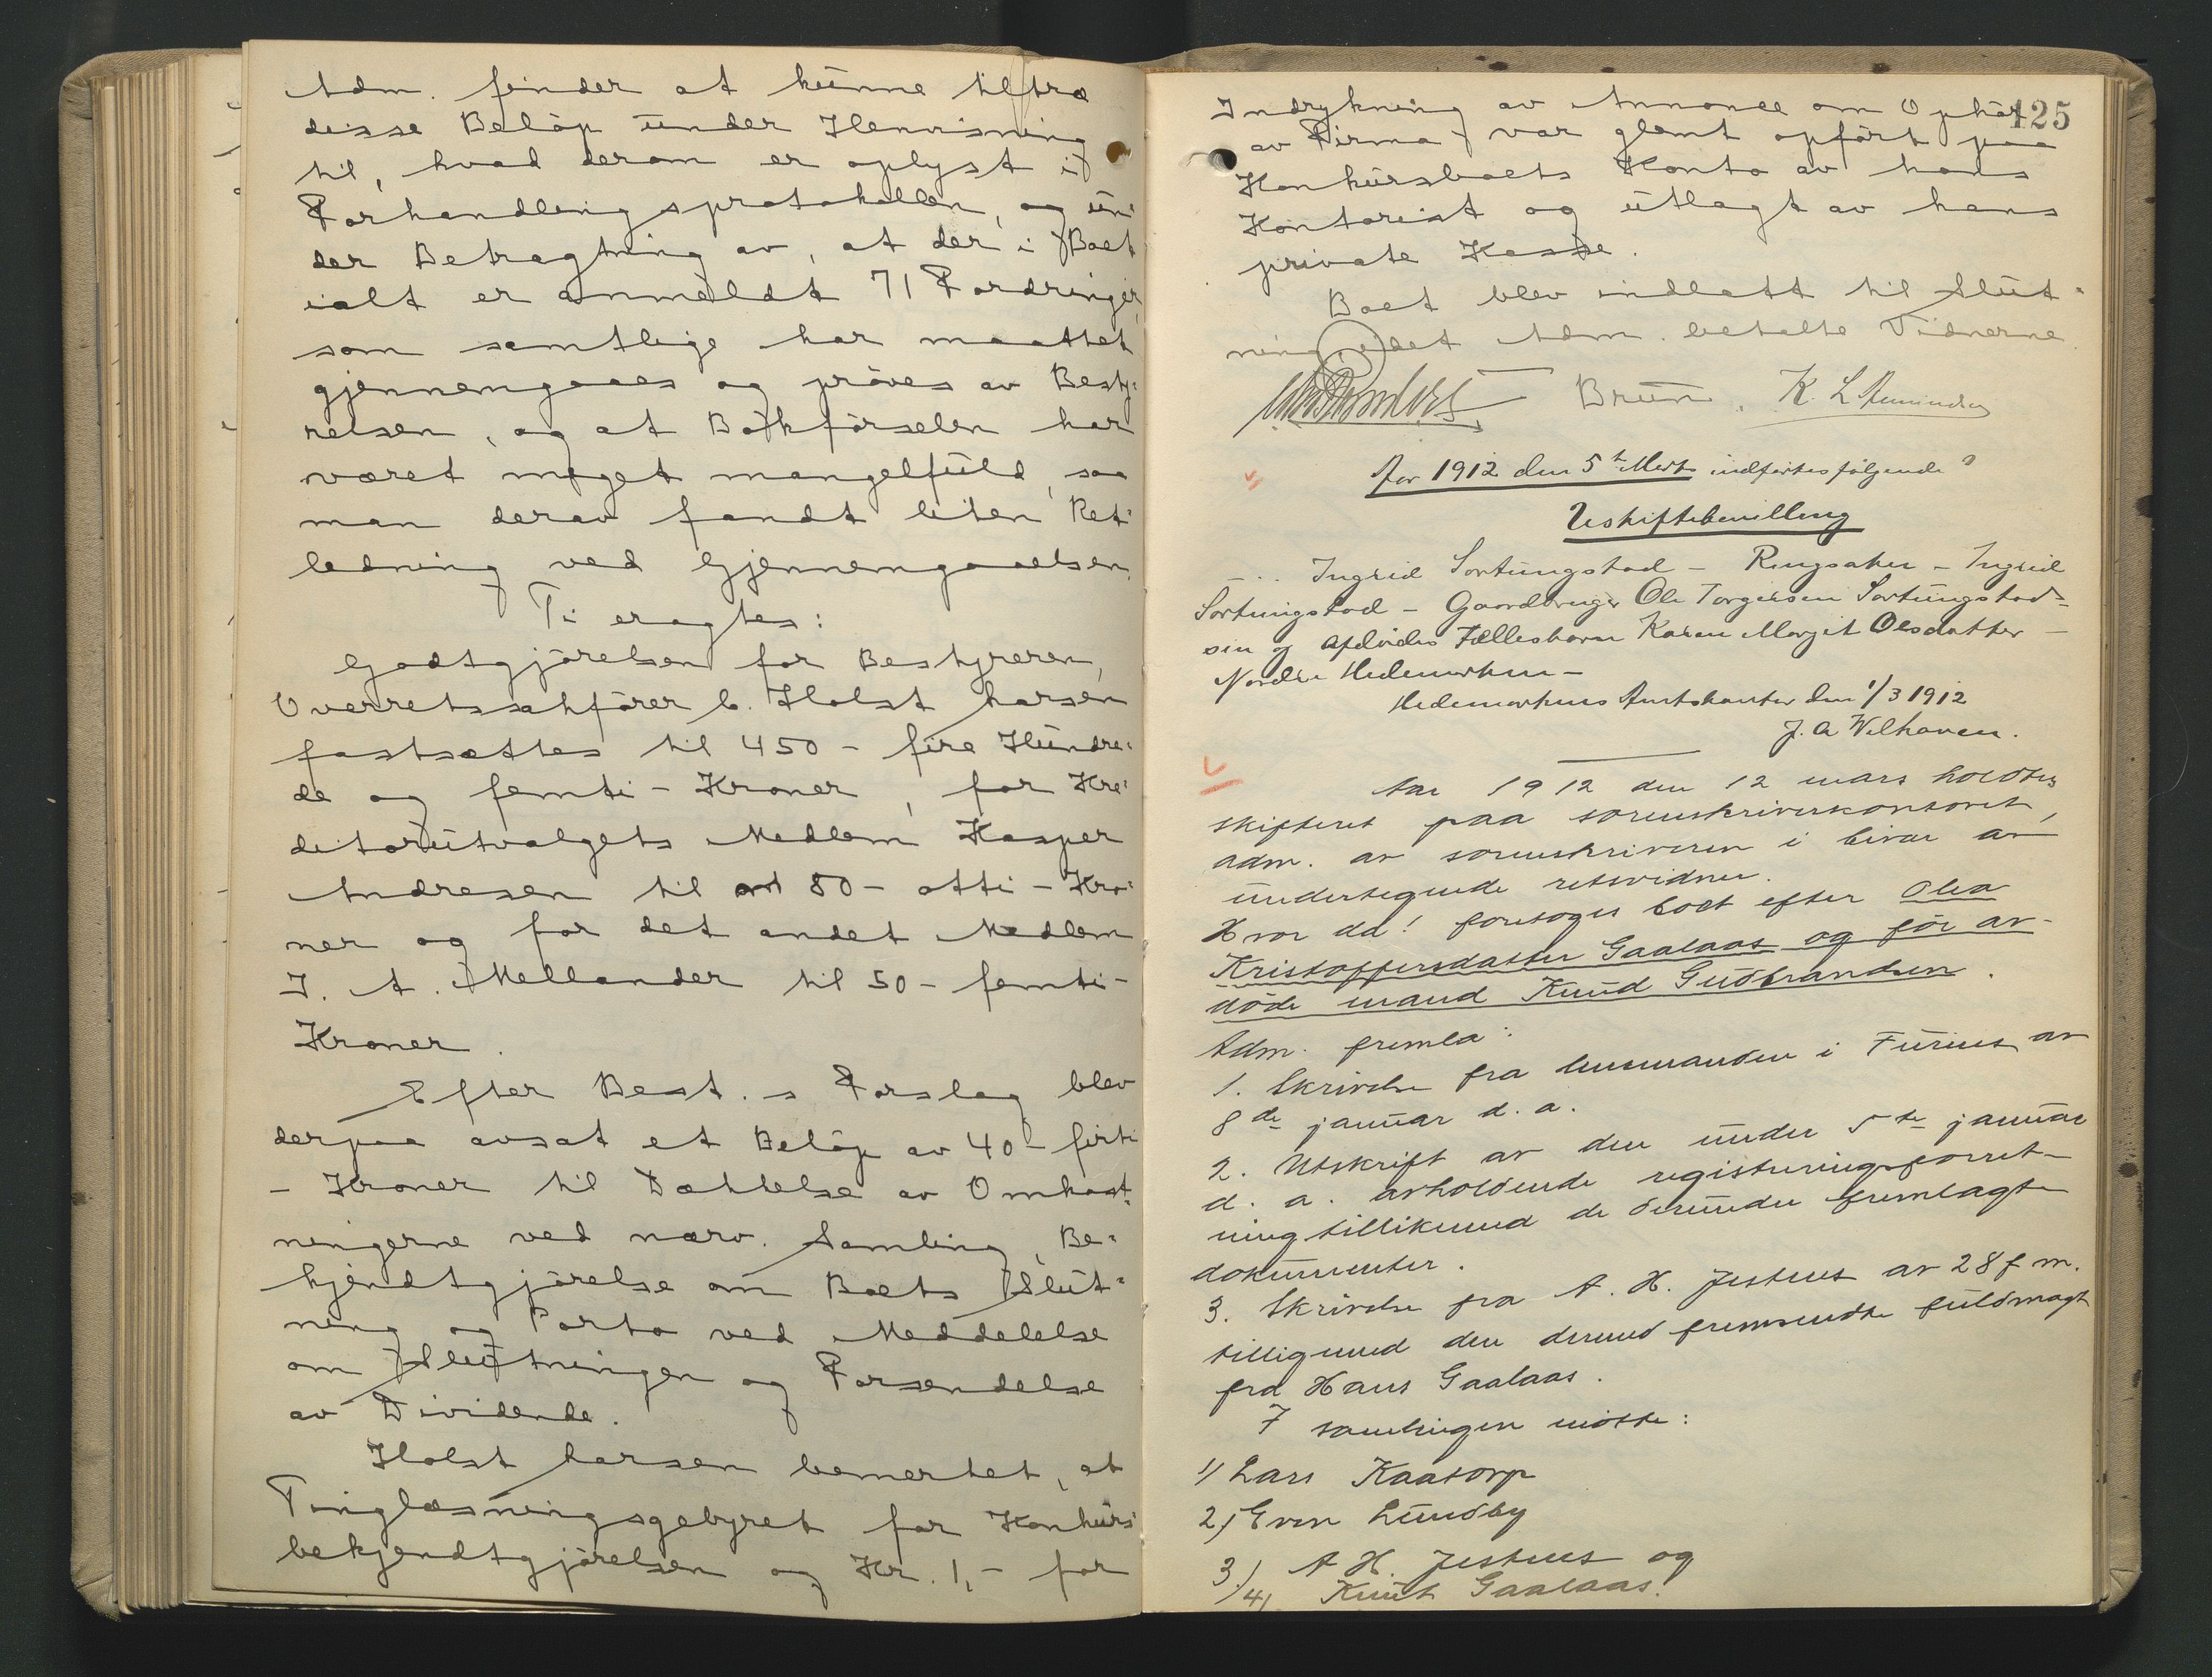 Adm. finder at kunne tiltræ
disse Beløp under Henvisning
til, hvad derom er oplyst i
Forhandlingsprotokollen, og un-
der Betragtning av, at der i Boet
ialt er anmeldt 71 Fordringer,
som samtlige har maattet
gjennemgaaes og prøves av Besty-
relsen, og at Bokførselen har
været meget mangelfuld, saa
man derav fandt liten Ret-
ledning ved Gjennemgaaelsen.
Ti eragtes:
Godtgjørelsen for Bestyreren,
Overretssakfører C. Holst Larsen
fastsættes til 450 - fire Hundre-
de og femti - Kroner, for Kre-
ditorutvalgets Medlem Kasper
Andresen til 80 - otti - Kro-
ner og for det andet Medlem
J. A. Mellander til 50 - femti -
Kroner.
Efter Best.s Forslag blev
derpaa avsat et Beløp av 40 - firti
- Kroner til Dættelse av Omkost-
ningerne ved nærv. Samling, Be-
kjendtgjørelse om Boets Slut-
ning og Porto ved Meddelelse
om Slutningen og Forsendelse
av Dividende.
Holst Larsen bemerket, at
Tinglæsningsgebyret for Konkurs-
bekjendtgjørelsen og Kr. 1,- for
125
Indrykning av Annonce om Ophør
av Firma var glemt opført paa
Konkursboets Konto av hans
Kontorist og utlagt av hans
private Kasse.
Boet blev indlatt til Slut-
ning, idet Adm. betalte Vidnerne.
Bruun. K. L. Amundsen
Aar 1912 den 5te Marts indførtes følgende:
Uskiftebevilling
... Ingrid Sortungstad - Ringsaker - Ingrid
Sortungstad - Gaardbruger Ole Torgersen Sortungstad -
sin og afdødes Fællesbarn Karen Margit Olsdatter -
Nordre Hedemarken -
Hedemarkens Amtskontor den 1/3 1912
J. A. Welhaven.
Aar 1912 den 12 mars holdtes
skifteret paa sorenskriverkontoret,
adm. av sorenskriveren i bivær av
undertegnede retsvidner.
Hvor da! foretoges boet efter Olea
Kristoffersdatter Gaalaas og før av-
døde mand Knud Gudbrandsen.
Adm. fremla:
1. Skrivelse fra lensmanden i Furnes av
8de januar d. a.
2. Utskrift av den under 5te januar
d. a. avholdende registreringsforret-
ning tillikemed de derunder fremlagte
dokumenter.
3. Skrivelse fra A. H. Jesnes av 28 f m.
tilligemed den dermed fremsendte fuldmagt
fra Hans Gaalaas.
I samlingen møtte:
1) Lars Kaatorp
2) Even Lundby
3) A H. Jesnes og
4) Knut Gaalaas.